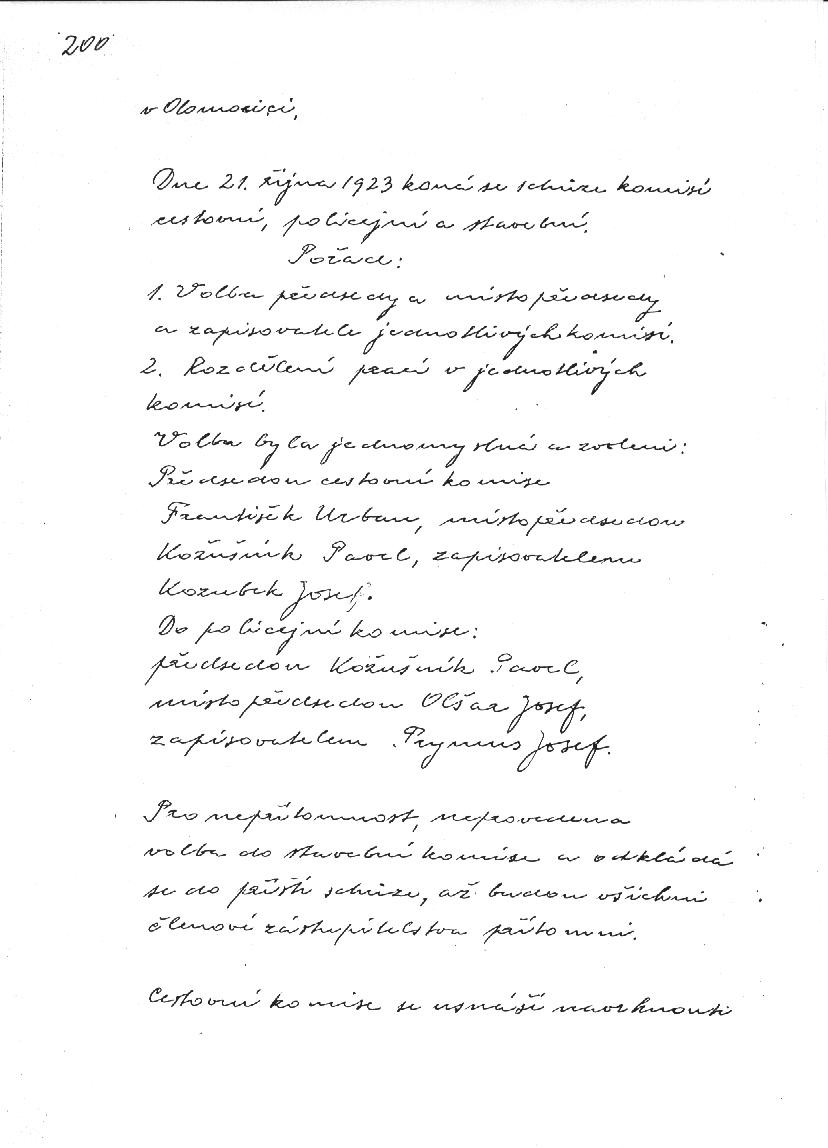 200
v Olomouci,
Dne 21. října 1923 koná se schůze komisí
cestovní, policejní a stavební.
Pořad:
1. Volba předsedy a místopředsedy
a zapisovatele jednotlivých komisí.
2. Rozdělení prací v jednotlivých
komisí.
Volba byla jednomyslná a zvoleni:
Předsedou cestovní komise
František Urban, místopředsedou
Kožušník Pavel, zapisovatelem
Kozubek Josef.
Do policejní komise:
předsedou Kožušník Pavel,
místopředsedou Olšar Josef,
zapisovatelem Prymus Josef.
Pro nepřítomnost, neprovedena
volba do stavební komise a odkládá
se do příští schůze, až budou všichni
členové zástupitelstva přítomni.
Cestovní komise se usnáší navrhnouti